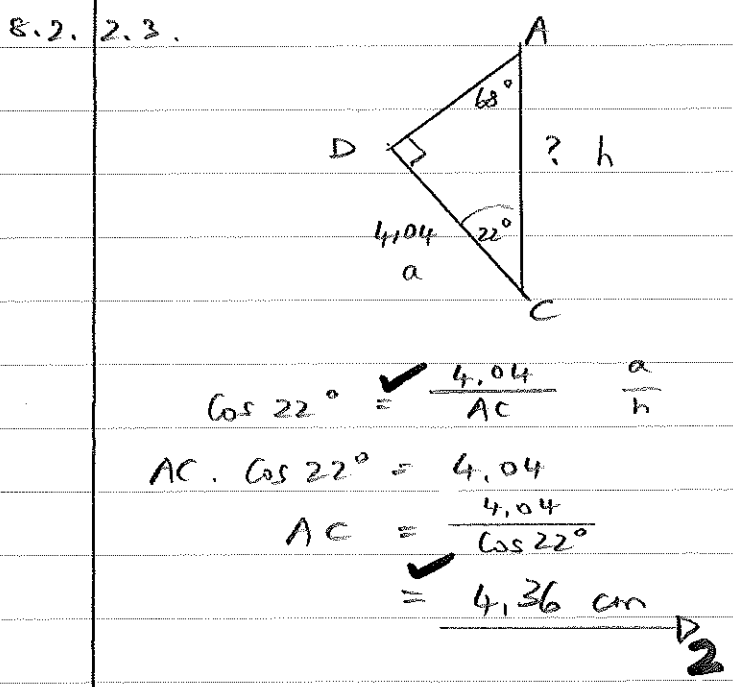 8.2.2.3.
A
68°
D
? h
4,04
22°
a
C
Cos 22° = 4,04 / AC a / h
AC . Cos 22° = 4,04
AC = 4,04 / Cos 22°
= 4,36 cm
2